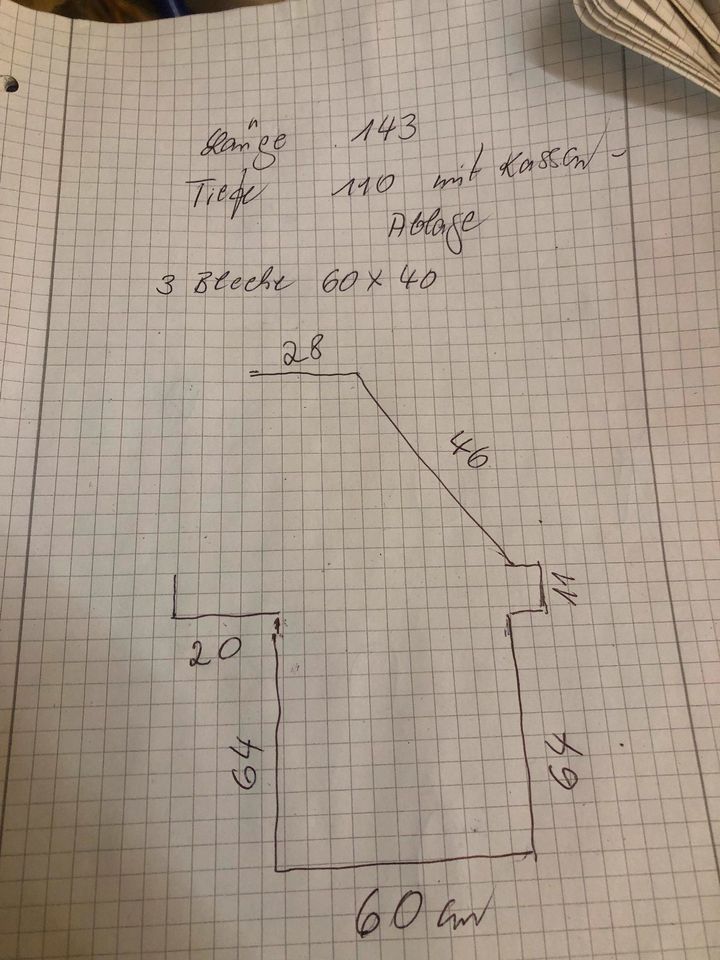 Länge 143
Tiefe 110 mit Kassen-
Ablage
3 Bleche 60 x 40
28
46
11
20
64
64
60 cm